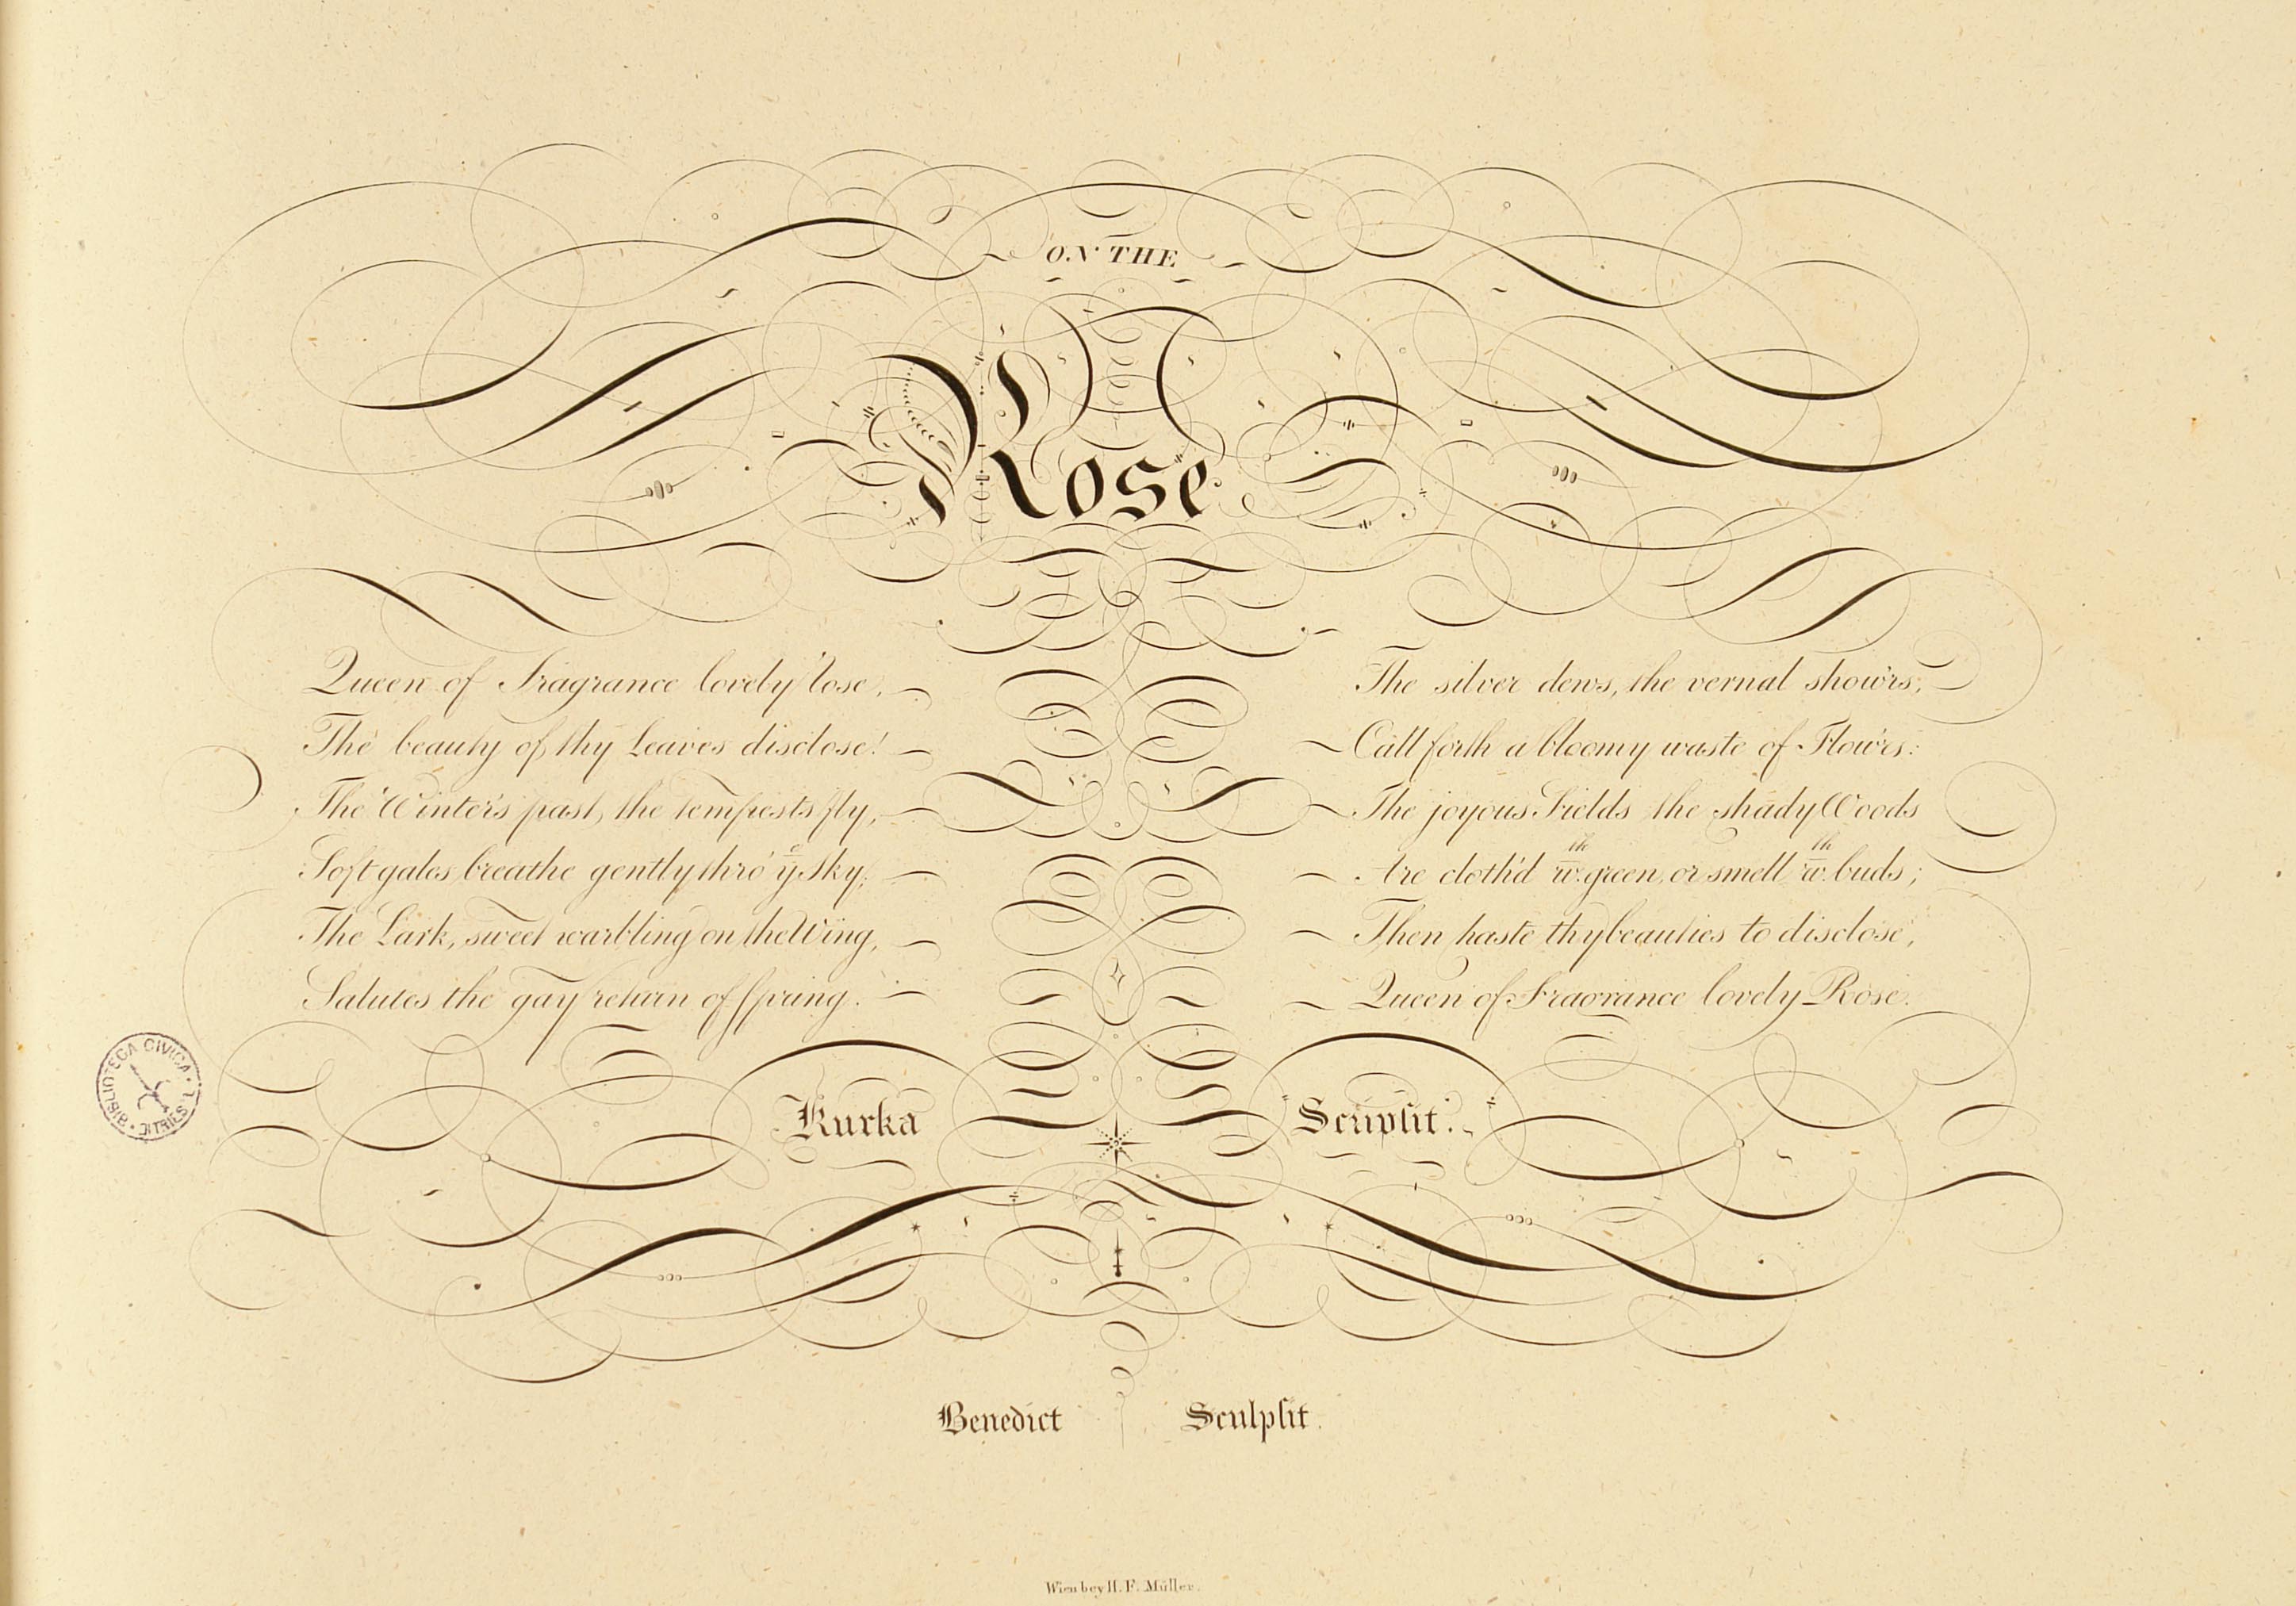 ON THE
Rose
Queen of Fragrance lovely Rose,
The beauty of thy Leaves disclose!
The Winter's past, the tempests fly,
Soft gales breathe gently thro' yᵉ sky;
The Lark, sweet warbling on the Wing,
Salutes the gay return of Spring.
The silver dews, the vernal show'rs,
Call forth a bloomy waste of Flow'rs:
The joyous Fields the shady Woods
Are cloth'd wᵗʰ. green, or smell wᵗʰ. buds;
Then haste thy beauties to disclose,
Queen of Fragrance lovely Rose.
Kurka Sculpſit.
BIBLIOTECA CIVICA · TRIESTE ·
Benedict Sculpſit.
Wien bey H. F. Müller.